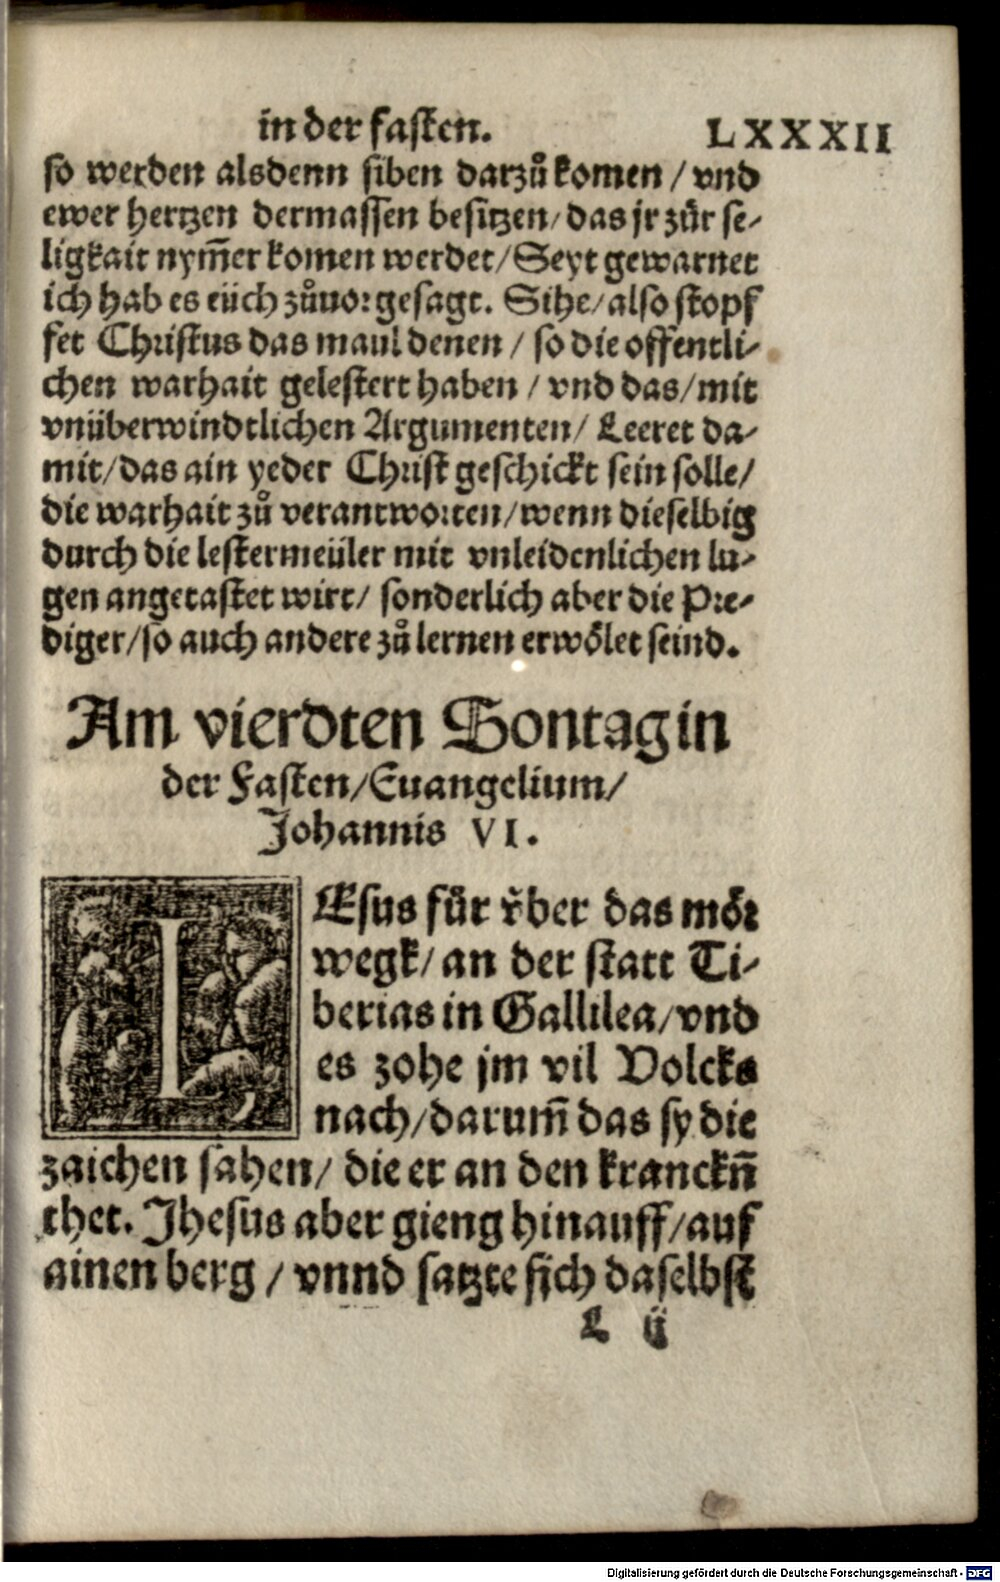 in der fasten. LXXXII
so werden alsdenn siben darzů komen / vnd
ewer hertzen dermassen besitzen/ das jr zůr se-
ligkait nym̃er komen werdet/ Seyt gewarnet
ich hab es eüch zůuor gesagt. Sihe/ also stopf
fet Christus das maul denen / so die offentli-
chen warhait gelestert haben / vnd das/ mit
vnüberwindtlichen Argumenten/ Leeret da-
mit/ das ain yeder Christ geschickt sein solle/
die warhait zů verantworten/ wenn dieselbig
durch die lestermeüler mit vnleidenlichen lu-
gen angetastet wirt/ sonderlich aber die Pre-
diger/ so auch andere zů lernen erwölet seind.
Am vierdten Sontag in
der Fasten/ Euangelium/
Johannis VI.
IEsus fůr v̈ber das mör
wegk/ an der statt Ti-
berias in Gallilea/ vnd
es zohe jm vil Volcks
nach/ darum̃ das sy die
zaichen sahen/ die er an den kranckñ
thet. Jhesus aber gieng hinauff/ auf
ainen berg / vnnd satzte sich daselbst
L ij
Digitalisierung gefördert durch die Deutsche Forschungsgemeinschaft - DFG